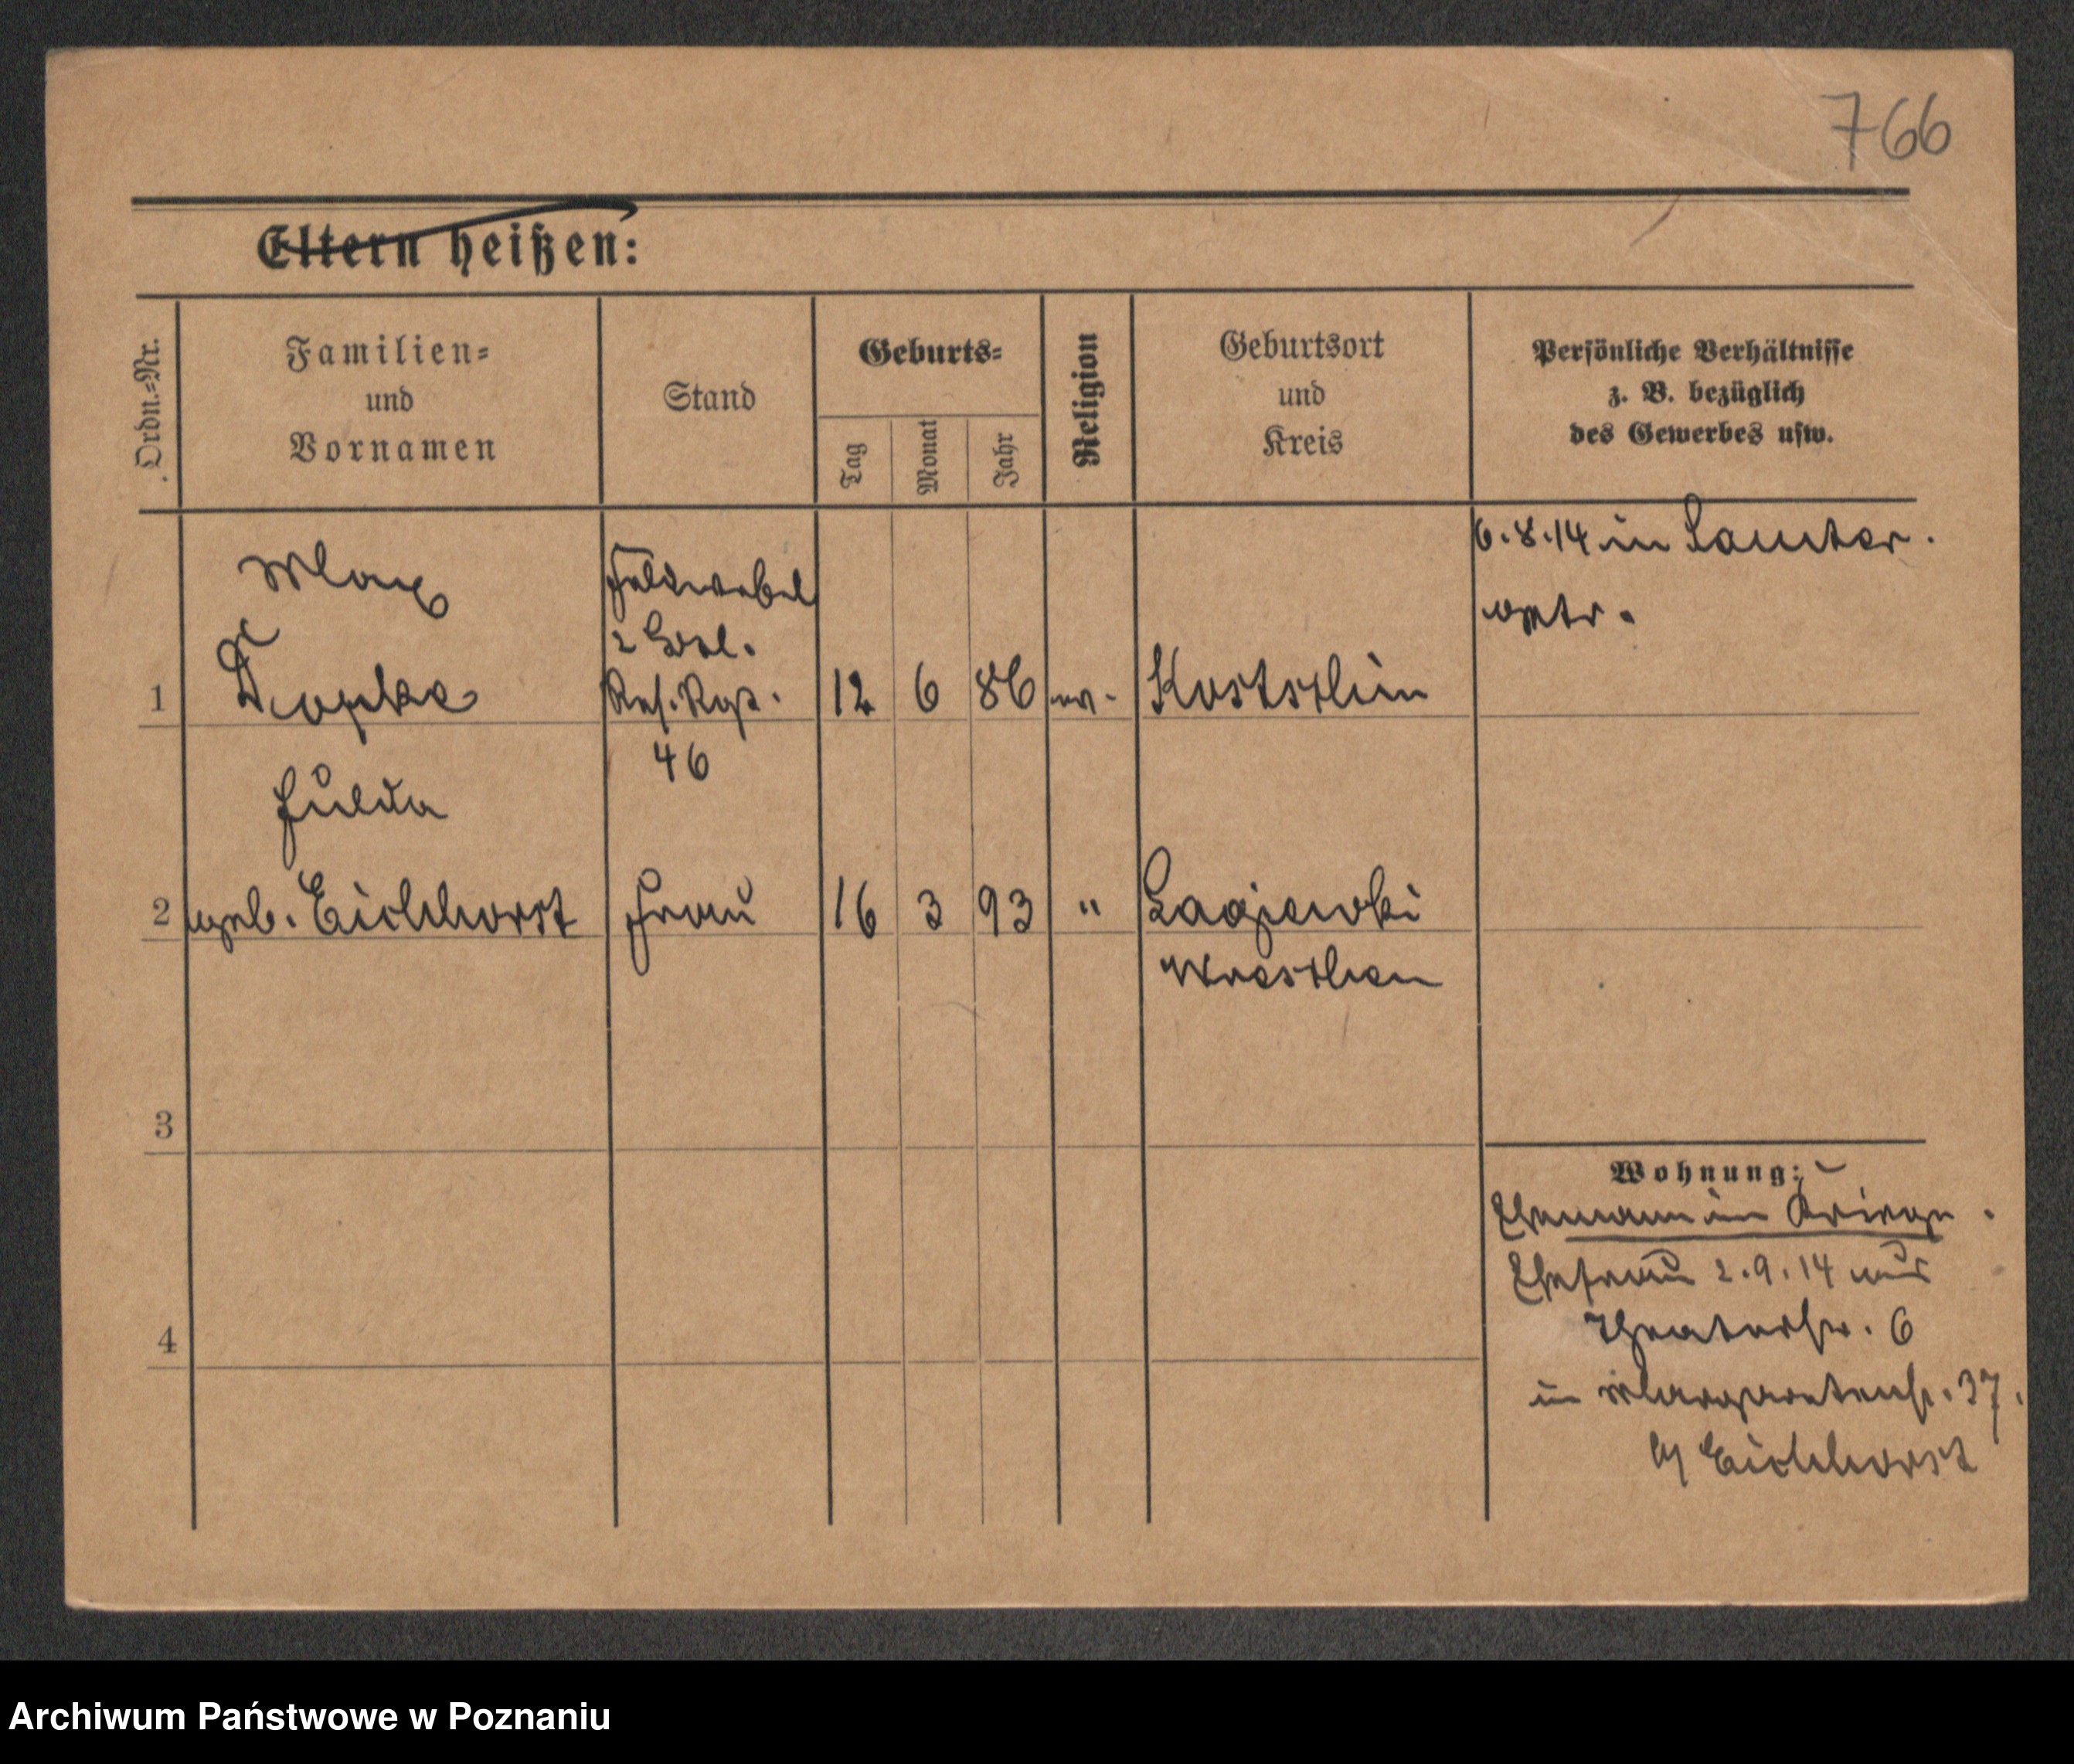 766
Eltern heißen:
Ordn.=Nr.
Familien=
und
Vornamen
Stand
Geburts=
Tag
Monat
Jahr
Religion
Geburtsort
und
Kreis
Persönliche Verhältnisse
z. B. bezüglich
des Gewerbes usw.
1
Max
Feldwebel
2
Res. Reg.
46
12
6
86
ev.
Kostschin
6.8.14 in Samter.
getr.
2
Hulda
geb. Eichhorst
Frau
16
3
93
"
Lagiewki
Wreschen
3
4
Wohnung:
Ehemann im Kriege.
Ehefrau 2.9.14 aus
Theaterstr. 6
in Margaretenstr. 37.
b/ Eichhorst
Archiwum Państwowe w Poznaniu